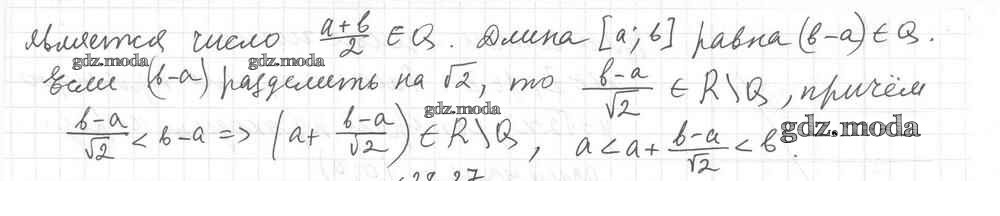 является число (a+b)/2 ∈ Q. Длина [a; b] равна (b-a) ∈ Q.
gdz.moda gdz.moda
Если (b-a) разделить на √2, то (b-a)/√2 ∈ R\Q, причём
gdz.moda
(b-a)/√2 < b-a => (a + (b-a)/√2) ∈ R\Q, a < a + (b-a)/√2 < b.
gdz.moda